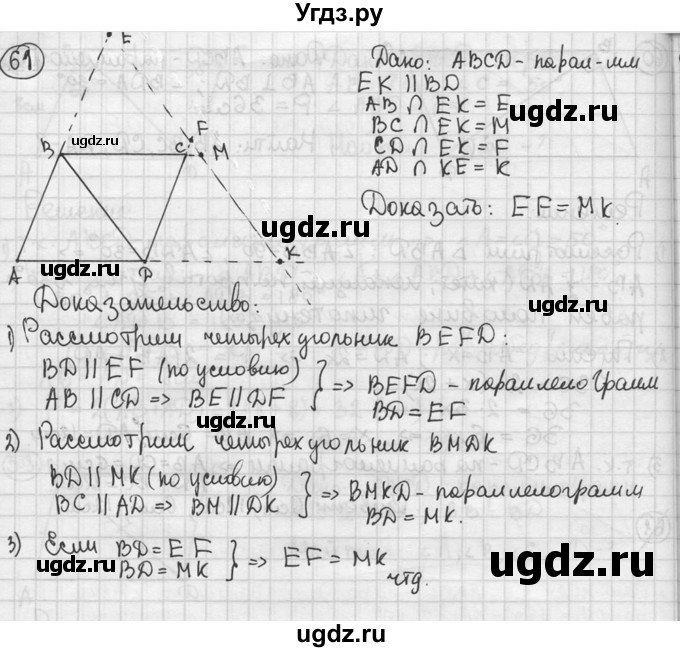 Угдз.ру
61
E
Дано: ABCD - парал-мм
EK || BD
AB ∩ EK = E
BC ∩ EK = M
CD ∩ EK = F
AD ∩ KE = K
ugdz.ru
ugdz.ru
F
B
C
M
ugdz.ru
Доказать: EF = MK.
ugdz.ru
A
D
K
ugdz.ru
ugdz.ru
Доказательство:
1) Рассмотрим четырехугольник BEFD:
BD || EF (по условию)
AB || CD => BE || DF } => BEFD - параллелограмм
BD = EF
ugdz.ru
ugdz.ru
2) Рассмотрим четырехугольник BMDK
ugdz.ru
BD || MK (по условию)
BC || AD => BM || DK } => BMKD - параллелограмм
BD = MK.
ugdz.ru
ugdz.ru
3) Если BD = EF
BD = MK } => EF = MK
чтд.
ugdz.ru
ugdz.ru
ugdz.ru